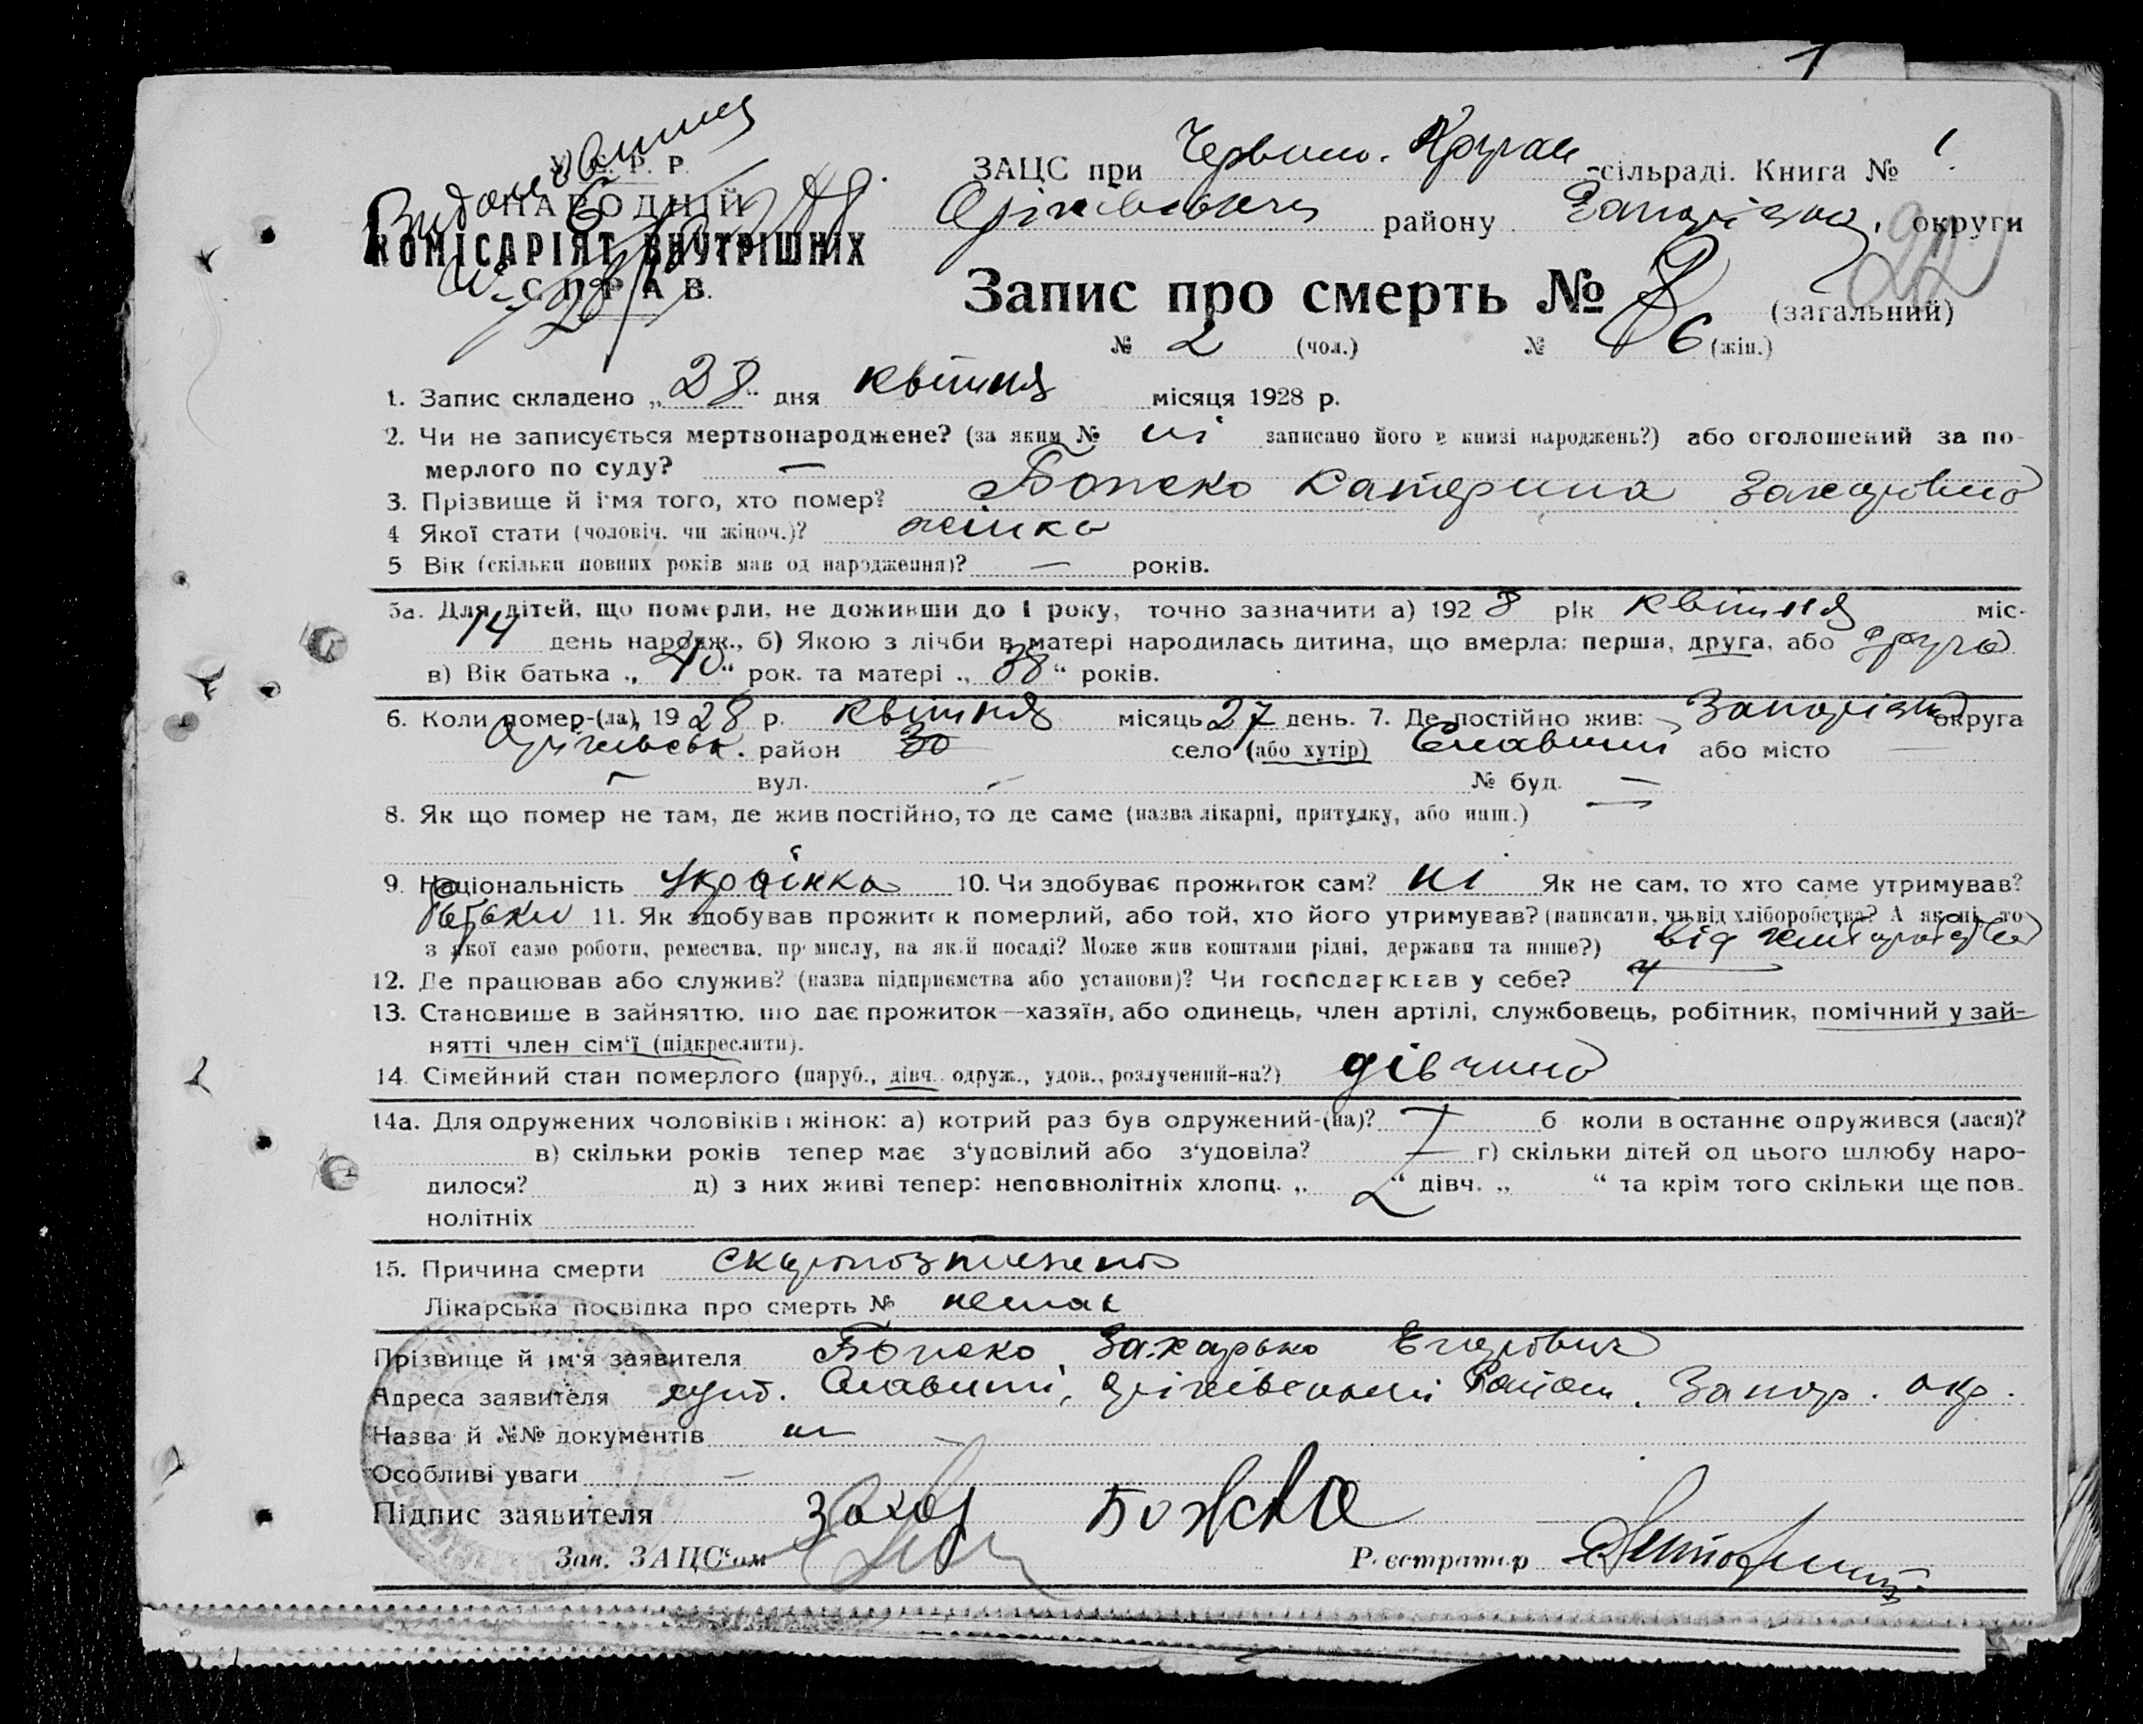 1
У. С. Р. Р.
НАРОДНІЙ
КОМІСАРІЯТ ВНУТРІШНІХ
СПРАВ.
ЗАЦС при Червоно. -сільраді. Книга № 1
району округи
22
Запис про смерть № 8 (загальний)
№ 2 (чол.) № 6 (жін.)
1. Запис складено „28“ дня квітня місяця 1928 р.
2. Чи не записується мертвонароджене? (за яким № ні записано його в книзі народжень?) або оголошений за по-
мерлого по суду? —
3. Прізвище й імя того, хто помер? Катерина Захаровна
4 Якої стати (чоловіч. чи жіноч.)? жінка
5 Вік (скільки повних років мав од народження)? — років.
5а. Для дітей, що померли, не доживши до 1 року, точно зазначити а) 1928 рік квітня міс.
14 день народж., б) Якою з лічби в матері народилась дитина, що вмерла: перша, друга, або друга
в) Вік батька „40“ рок. та матері „38“ років.
6. Коли помер-(ла), 1928 р. квітня місяць 27 день. 7. Де постійно жив: округа
район село (або хутір) або місто —
— вул. — № буд. —
8. Як що помер не там, де жив постійно, то де саме (назва лікарні, притулку, або инш.) —
9. Національність Українка 10. Чи здобуває прожиток сам? ні Як не сам, то хто саме утримував?
батьки 11. Як здобував прожиток померлий, або той, хто його утримував? (написати, чи від хліборобства? А як ні, то
з якої саме роботи, ремества, промислу, на якій посаді? Може жив коштами рідні, держави та инше?) від
12. Де працював або служив? (назва підприємства або установи)? Чи господарював у себе?
13. Становище в зайняттю, що дає прожиток—хазяїн, або одинець, член артілі, службовець, робітник, помічний у зай-
нятті член сім'ї (підкреслити).
14. Сімейний стан померлого (паруб., дівч. одруж., удов., розлучений-на?) дівчина
14а. Для одружених чоловіків і жінок: а) котрий раз був одружений-(на)? б коли востаннє одружився (лася)?
в) скільки років тепер має з'удовілий або з'удовіла? г) скільки дітей од цього шлюбу наро-
дилося? д) з них живі тепер: неповнолітніх хлопц. „ “ дівч. „ “ та крім того скільки ще пов-
нолітніх
15. Причина смерти
Лікарська посвідка про смерть № немає
Прізвище й ім'я заявителя Захарько
Адреса заявителя хут. Запор. окр.
Назва й №№ документів
Особливі уваги —
Підпис заявителя Захар Божко
Зав. ЗАЦС'ом Реєстратор